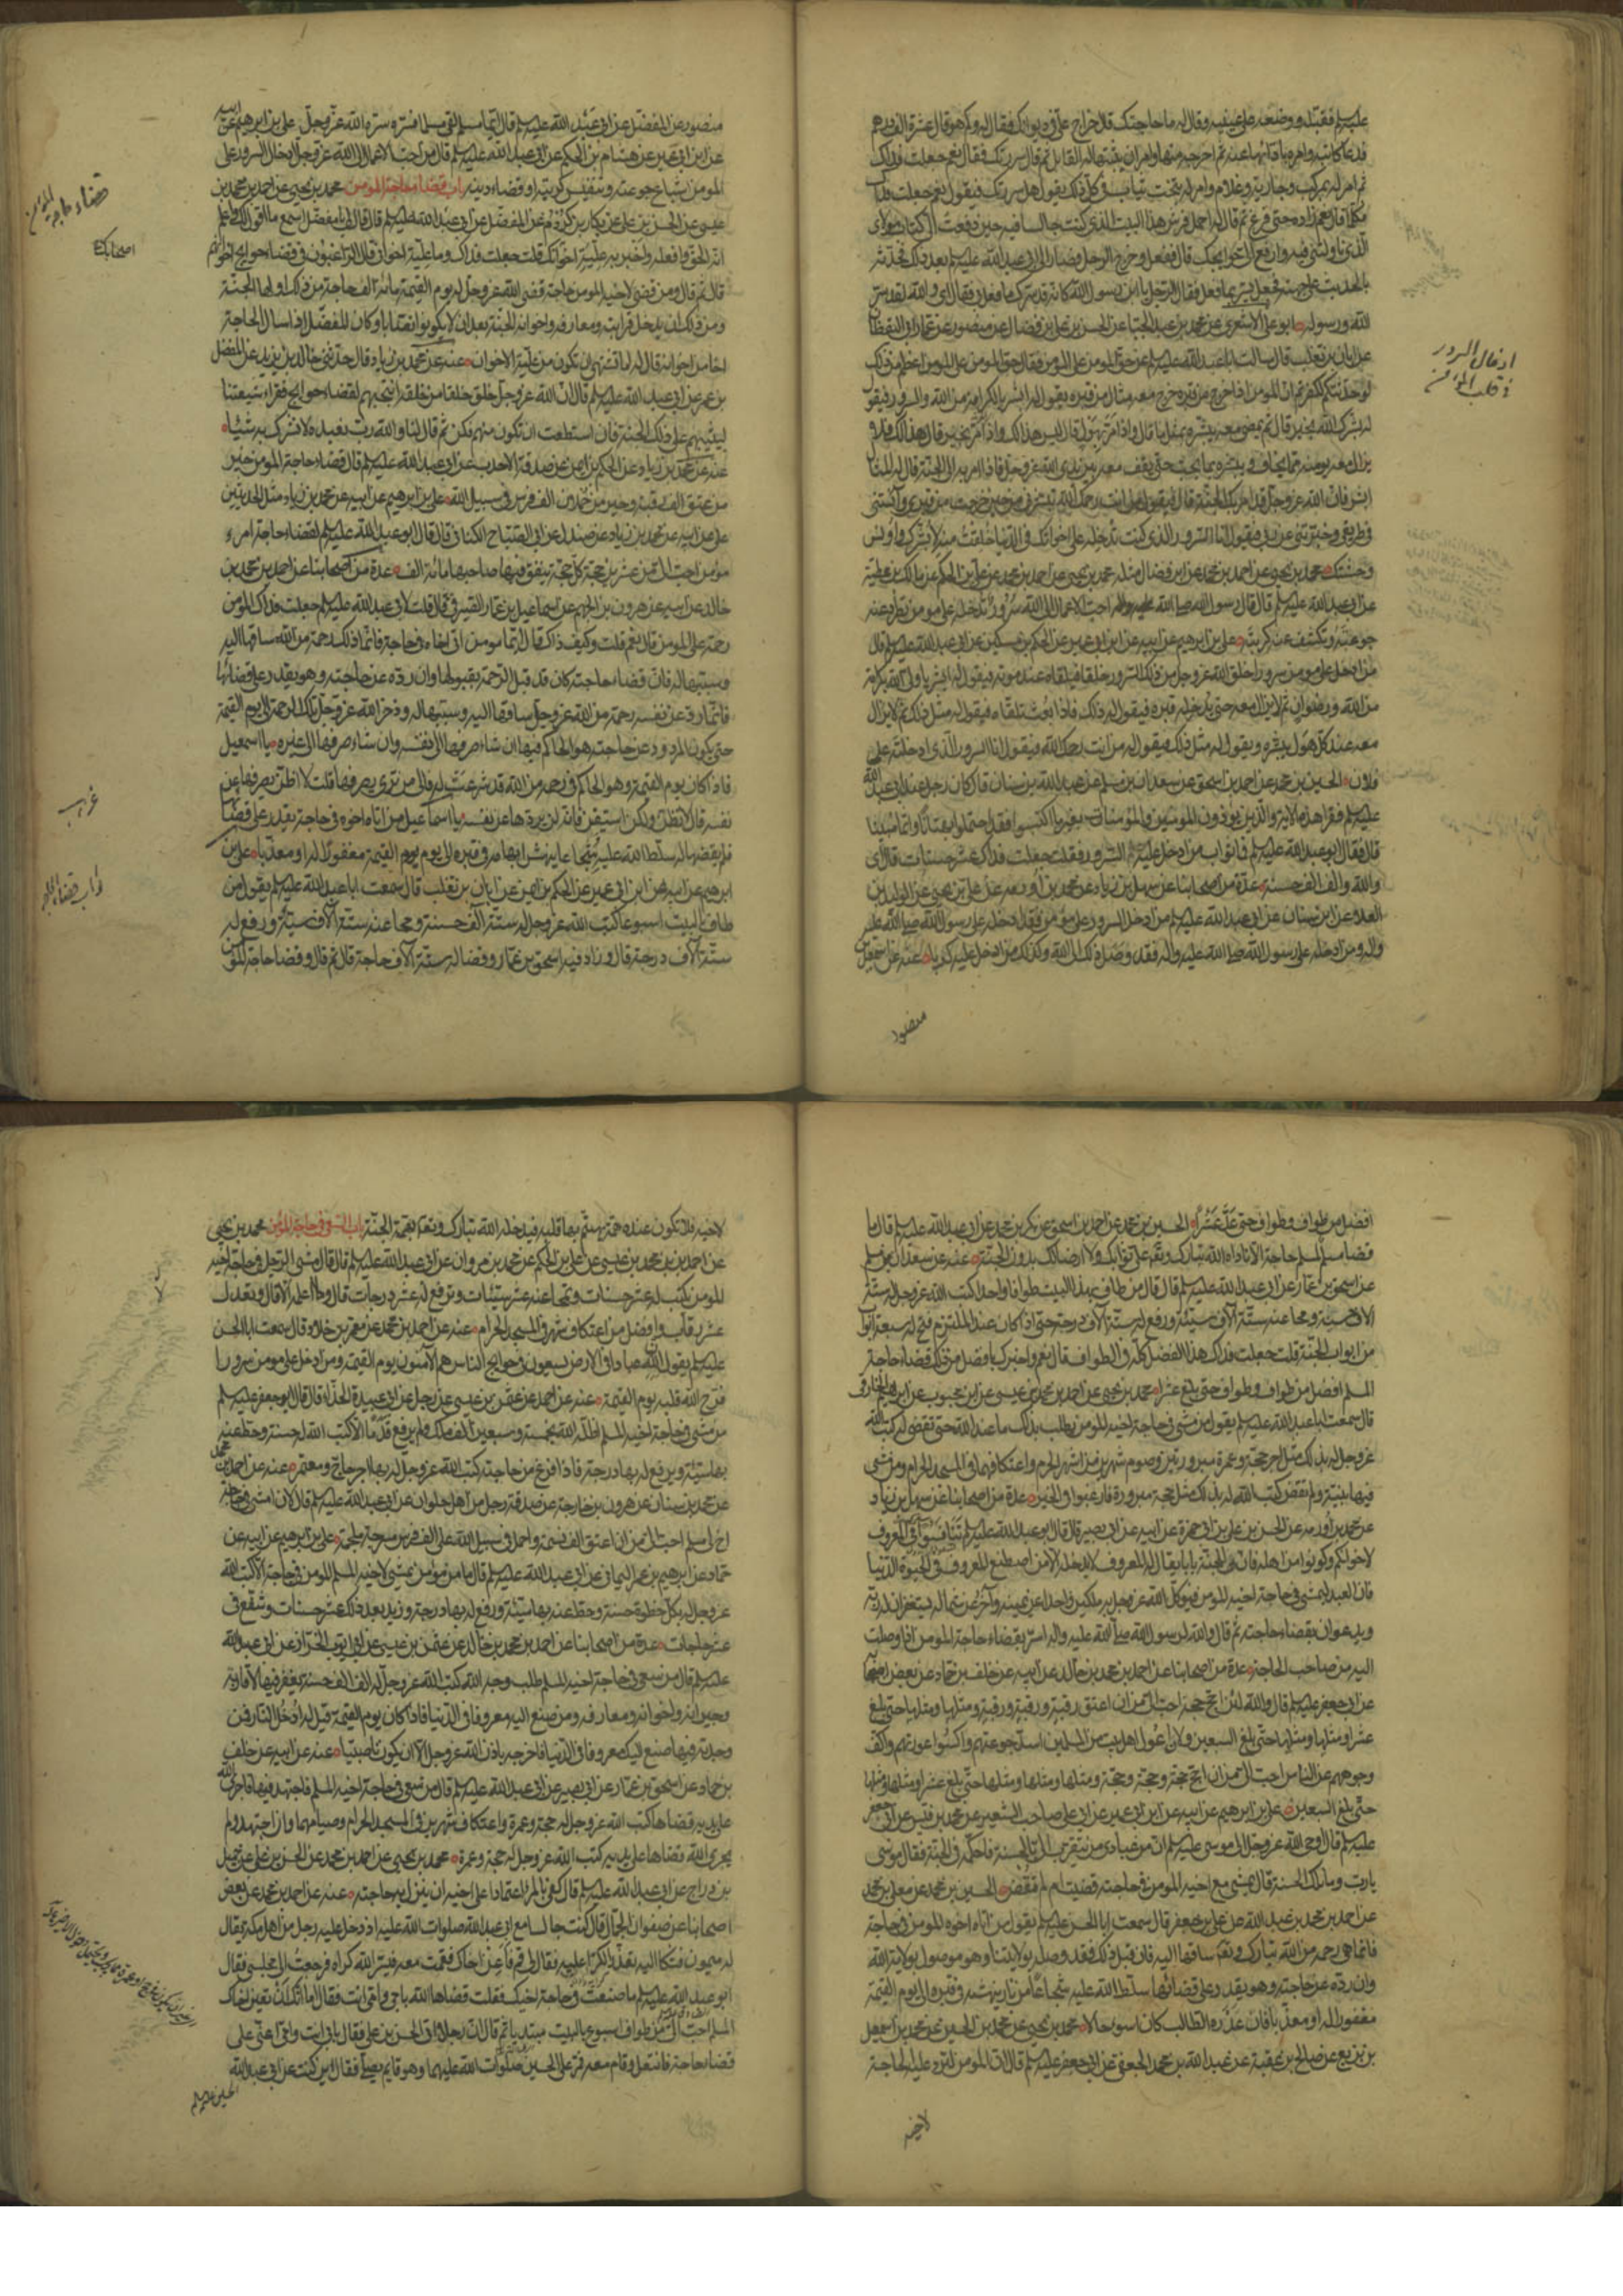 عليه السلم فقبله ووضعه على عينيه وقال له ما حاجتك قال خراج علي في ديوانك فقال له وكم هو قال عشرة الف درهم
فدعا كاتبه وامره بادائها عنه ثم اخرجه منها وامر ان يثبتها له لقابل ثم قال سررتك فقال نعم جعلت فداك
ثم امر له بمركب وجارية وغلام وامر له بتخت ثياب في كل ذلك يقول هل سررتك فيقول نعم جعلت فداك
فكلما قال نعم زاده حتى فرغ ثم قال له احمل فرش هذا البيت الذي كنت جالسا فيه حين دفعت الي كتاب مولاي
الذي ناولتني فيه وارفع الي حوايجك قال ففعل وخرج الرجل فصار الى ابي عبد الله عليه السلم بعد ذلك فحدثه
بالحديث على جهته فجعل يسر بما فعل فقال الرجل يا ابن رسول الله كانه قد سرك ما فعل بي فقال اي والله لقد سر
الله ورسوله ابو علي الاشعري عن محمد بن عبد الجبار عن الحسن بن علي بن فضال عن منصور عن عمار ابي اليقظان
عن ابان بن تغلب قال سالت ابا عبد الله عليه السلم عن حق المومن على المومن فقال حق المومن على المومن اعظم من ذلك
لو حدثتكم لكفرتم ان المومن اذا خرج من قبره خرج معه مثال من قبره يقول له ابشر بالكرامة من الله والسرور فيقول
له بشرك الله بخير قال ثم يمضي معه يبشره بمثل ما قال واذا مر بهول قال ليس هذا لك واذا مر بخير قال هذا لك فلا
يزال معه يومنه مما يخاف ويبشره بما يحب حتى يقف معه بين يدي الله عز وجل فاذا امر به الى الجنة قال له المثال
ابشر فان الله عز وجل قد امر بك الى الجنة قال فيقول من انت رحمك الله تبشرني من حين خرجت من قبري وآنستني
في طريقي وخبرتني عن ربي فيقول انا السرور الذي كنت تدخله على اخوانك في الدنيا خلقت منه لابشرك واونس
وحشتك محمد بن يحيى عن احمد بن محمد عن ابن فضال مثله محمد بن يحيى عن احمد بن محمد عن علي بن الحكم عن مالك بن عطية
عن ابي عبد الله عليه السلم قال قال رسول الله صلى الله عليه واله احب الاعمال الى الله سرور تدخله على مومن تطرد عنه
جوعته وتكشف عنه كربته علي بن ابرهيم عن ابيه عن ابن ابي عمير عن الحكم بن مسكين عن ابي عبد الله عليه السلم قال
من ادخل على مومن سرورا خلق الله عز وجل من ذلك السرور خلقا فيلقاه عند موته فيقول له ابشر يا ولي الله بكرامة
من الله ورضوان ثم لا يزال معه حتى يدخله قبره فيقول له مثل ذلك فاذا بعث تلقاه فيقول له مثل ذلك ثم لا يزال
معه عند كل هول يبشره ويقول له مثل ذلك فيقول له من انت رحمك الله فيقول انا السرور الذي ادخلته على
فلان الحسين بن محمد عن احمد بن اسحق عن سعدان بن مسلم عن عبد الله بن سنان قال كان رجل عند ابي عبد الله
عليه السلم فقرا هذه الاية والذين يوذون المومنين والمؤمنات بغير ما اكتسبوا فقد احتملوا بهتانا واثما مبينا
قال فقال ابو عبد الله عليه السلم فما ثواب من ادخل عليه السرور فقلت جعلت فداك عشر حسنات قال اي
والله والف الف حسنة عدة من اصحابنا عن سهل بن زياد عن محمد بن اورمه عن علي بن يحيى عن الوليد بن
العلا عن ابن سنان عن ابي عبد الله عليه السلم من ادخل السرور على مؤمن فقد ادخله على رسول الله صلى الله عليه
واله ومن ادخله على رسول الله صلى الله عليه واله فقد وصل ذلك الى الله وكذلك من ادخل عليه كربا عنه عن اسمعيل بن
منصور
ادخال السرور
في قلب المؤمن
منصور عن المفضل عن ابي عبد الله عليه السلم قال ايما مسلم لقي مسلما فسره سره الله عز وجل علي بن ابرهيم عن ابيه
عن ابن ابي عمير عن هشام بن الحكم عن ابي عبد الله عليه السلم قال من احب الاعمال الى الله عز وجل ادخال السرور على
المومن اشباع جوعته وتنفيس كربته او قضاء دينه باب قضاء حاجة المومن محمد بن يحيى عن احمد بن محمد بن
عيسى عن الحسن بن علي عن بكار بن كردم عن المفضل عن ابي عبد الله عليه السلم قال قال لي يا مفضل اسمع ما اقول لك واعلم
انه الحق وافعله واخبر به علية اخوانك قلت جعلت فداك وما علية اخواني قال الراغبون في قضاء حوايج اخوانهم
قال ثم قال ومن قضى لاخيه المومن حاجة قضى الله عز وجل له يوم القيمة مائة الف حاجة من ذلك اولها الجنة
ومن ذلك ان يدخل قرابته ومعارفه واخوانه الجنة بعد ان لا يكونوا نصابا وكان المفضل اذا سال الحاجة
اخا من اخوانه قال له اما تشتهي ان تكون من علية الاخوان عنه عن محمد بن زياد قال حدثني خالد بن يزيد عن المفضل
بن عمر عن ابي عبد الله عليه السلم قال ان الله عز وجل خلق خلقا من خلقه انتجبهم لقضاء حوايج فقراء شيعتنا
ليثيبهم على ذلك الجنة فان استطعت ان تكون منهم فكن ثم قال لنا والله رب نعبده لا نشرك به شيئا
عنه عن محمد بن زياد عن الحكم بن ايمن عن صدقة الاحدب عن ابي عبد الله عليه السلم قال قضاء حاجة المومن خير
من عتق الف رقبة وخير من حملان الف فرس في سبيل الله علي بن ابرهيم عن ابيه عن محمد بن زياد مثل الحديثين
علي عن ابيه عن محمد بن زياد عن صندل عن ابي الصباح الكناني قال قال ابو عبد الله عليه السلم لقضاء حاجة امرء
مؤمن احب الي من عشرين حجة كل حجة ينفق فيها صاحبها مائة الف عدة من اصحابنا عن احمد بن محمد بن
خالد عن ابيه عن هرون بن الجهم عن اسماعيل بن عمار الصيرفي قال قلت لابي عبد الله عليه السلم جعلت فداك المومن
رحمة على المومن قال نعم قلت وكيف ذاك قال ايما مومن اتى اخاه في حاجة فانما ذلك رحمة من الله ساقها اليه
وسببها له فان قضاء حاجته كان قد قبل الرحمة بقبولها وان رده عن حاجته وهو يقدر على قضائها
فانما رد عن نفسه رحمة من الله عز وجل ساقها اليه وسببها له وذخر الله عز وجل تلك الرحمة الى يوم القيمة
حتى يكون المردود عن حاجته هو الحاكم فيها ان شاء صرفها الى نفسه وان شاء صرفها الى غيره يا اسمعيل
فاذا كان يوم القيمة وهو الحاكم في رحمة من الله قد شرعت له فالى من ترى يصرفها قلت لا اظن يصرفها عن
نفسه قال لا تظن ولكن استيقن فانه لن يردها عن نفسه يا اسماعيل من اتاه اخوه في حاجة يقدر على قضائها
فلم يقضها له سلط الله عليه شجاعا ينهش ابهامه في قبره الى يوم القيمة مغفورا له او معذبا علي بن
ابرهيم عن ابيه عن ابن ابي عمير عن الحكم بن ايمن عن ابان بن تغلب قال سمعت ابا عبد الله عليه السلم يقول من
طاف بالبيت اسبوعا كتب الله عز وجل له ستة الف حسنة ومحا عنه ستة آلاف سيئة ورفع له
ستة آلاف درجة قال وزاد فيه اسحق بن عمار وقضا له ستة آلاف حاجة قال ثم قال وقضا حاجة المؤمن
قضاء حاجة المؤمن
اصحابك
غريب
افضل من طواف وطواف حتى عد عشرا الحسين بن محمد عن احمد بن اسحق عن بكر بن محمد عن ابي عبد الله عليه السلم قال ما
قضا مسلم لمسلم حاجة الا ناداه الله تبارك وتعالى علي ثوابك ولا ارضا لك بدون الجنة عنه عن سعدان بن مسلم
عن اسحق بن عمار عن ابي عبد الله عليه السلم قال قال من طاف بهذا البيت طوافا واحدا كتب الله عز وجل له ستة
آلاف حسنة ومحا عنه ستة آلاف سيئة ورفع له ستة آلاف درجة حتى اذا كان عند الملتزم فتح له سبعة ابواب
من ابواب الجنة قلت جعلت فداك هذا الفضل كله في الطواف قال نعم واخبرك بافضل من ذلك قضاء حاجة
المسلم افضل من طواف وطواف حتى بلغ عشرا محمد بن يحيى عن احمد بن محمد بن عيسى عن ابن محبوب عن ابرهيم الخارقي
قال سمعت ابا عبد الله عليه السلم يقول من مشى في حاجة اخيه المومن يطلب بذلك ما عند الله حتى تقضى له كتب الله
عز وجل له بذلك مثل اجر حجة وعمرة مبرورتين وصوم شهرين من اشهر الحرم واعتكافهما في المسجد الحرام ومن مشى
فيها بنية ولم تقض كتب الله له بذلك مثل حجة مبرورة فارغبوا في الخير عدة من اصحابنا عن سهل بن زياد
عن محمد بن اورمه عن الحسن بن علي بن ابي حمزة عن ابيه عن ابي بصير قال قال ابو عبد الله عليه السلم تنافسوا في المعروف
لاخوانكم وكونوا من اهله فان للجنة بابا يقال له المعروف لا يدخله الا من اصطنع المعروف في الحيوة الدنيا
فان العبد ليمشي في حاجة اخيه المومن فيوكل الله عز وجل به ملكين واحدا عن يمينه وآخر عن شماله يستغفران له ربه
ويدعوان بقضاء حاجته ثم قال والله لرسول الله صلى الله عليه واله اسر بقضاء حاجة المومن اذا وصلت
اليه من صاحب الحاجة عدة من اصحابنا عن احمد بن محمد بن خالد عن ابيه عن خلف بن حماد عن بعض اصحابه
عن ابي جعفر عليه السلم قال والله لئن احج حجة احب الي من ان اعتق رقبة ورقبة ورقبة ومثلها ومثلها حتى بلغ
عشرا ومثلها ومثلها حتى بلغ السبعين ولان اعول اهل بيت من المسلمين اسد جوعتهم واكسوا عورتهم واكف
وجوههم عن الناس احب الي من ان احج حجة وحجة وحجة ومثلها ومثلها ومثلها حتى بلغ عشرا ومثلها ومثلها
حتى بلغ السبعين علي بن ابرهيم عن ابيه عن ابن ابي عمير عن ابي علي صاحب الشعير عن محمد بن قيس عن ابي جعفر
عليه السلم قال اوحى الله عز وجل الى موسى عليه السلم ان من عبادي من يتقرب الي بالحسنة فاحكمه في الجنة فقال موسى
يا رب وما تلك الحسنة قال يمشي مع اخيه المومن في حاجته قضيت ام لم تقض الحسين بن محمد عن معلى بن محمد
عن احمد بن محمد بن عبد الله عن علي بن جعفر قال سمعت ابا الحسن عليه السلم يقول من اتاه اخوه المومن في حاجة
فانما هي رحمة من الله تبارك وتعالى ساقها اليه فان قبل ذلك فقد وصله بولايتنا وهو موصول بولاية الله
وان رده عن حاجته وهو يقدر على قضائها سلط الله عليه شجاعا من نار ينهشه في قبره الى يوم القيمة
مغفور له او معذبا فان عذره الطالب كان اسوء حالا محمد بن يحيى عن محمد بن الحسين عن محمد بن اسمعيل
بن بزيع عن صالح بن عقبة عن عبد الله بن محمد الجعفي عن ابي جعفر عليه السلم قال ان المومن لترد عليه الحاجة
لاخيه
لاخيه فلا تكون عنده فيهتم بها قلبه فيدخله الله تبارك وتعالى بهمه الجنة باب السعي في حاجة المؤمن محمد بن يحيى
عن احمد بن محمد بن عيسى عن علي بن الحكم عن محمد بن مروان عن ابي عبد الله عليه السلم قال قال مشي الرجل في حاجة اخيه
المومن يكتب له عشر حسنات وتمحا عنه عشر سيئات وترفع له عشر درجات قال ولا اعلمه الا قال وتعدل
عشر رقاب وافضل من اعتكاف شهر في المسجد الحرام عنه عن احمد بن محمد عن معمر بن خلاد قال سمعت ابا الحسن
عليه السلم يقول ان لله عبادا في الارض يسعون في حوايج الناس هم الآمنون يوم القيمة ومن ادخل على مومن سرورا
فرح الله قلبه يوم القيمة عنه عن احمد عن عثمن بن عيسى عن رجل عن ابي عبيدة الحذاء قال قال ابو جعفر عليه السلم
من مشى في حاجة اخيه المسلم اظله الله بخمسة وسبعين الف ملك ولم يرفع قدما الا كتب الله له حسنة وحط عنه
بها سيئة ويرفع له بها درجة فاذا فرغ من حاجته كتب الله عز وجل له بها اجر حاج ومعتمر عنه عن احمد بن محمد
عن محمد بن سنان عن هرون بن خارجة عن صدقة رجل من اهل حلوان عن ابي عبد الله عليه السلم قال لان امشي في حاجة
اخ لي مسلم احب الي من ان اعتق الف نسمة واحمل في سبيل الله على الف فرس مسرجة ملجمة علي بن ابرهيم عن ابيه عن
حماد عن ابرهيم بن عمر اليماني عن ابي عبد الله عليه السلم قال ما من مؤمن يمشي لاخيه المسلم المومن في حاجة الا كتب الله
عز وجل له بكل خطوة حسنة وحط عنه بها سيئة ورفع له بها درجة وزيد بعد ذلك عشر حسنات وشفع في
عشر حاجات عدة من اصحابنا عن احمد بن محمد بن خالد عن عثمن بن عيسى عن ابي ايوب الخزاز عن ابي عبد الله
عليه السلم قال من سعى في حاجة اخيه المسلم طلب وجه الله كتب الله عز وجل له الف الف حسنة يغفر فيها لاقاربه
وجيرانه واخوانه ومعارفه ومن صنع اليه معروفا في الدنيا فاذا كان يوم القيمة قيل له ادخل النار فمن
وجدته فيها صنع اليك معروفا في الدنيا فاخرجه باذن الله عز وجل الا ان يكون ناصبيا عنه عن ابيه عن خلف
بن حماد عن اسحق بن عمار عن ابي بصير عن ابي عبد الله عليه السلم قال من سعى في حاجة اخيه المسلم فاجتهد فيها فاجرى الله
على يديه قضاها كتب الله عز وجل له حجة وعمرة واعتكاف شهرين في المسجد الحرام وصيامهما وان اجتهد ولم
يجري الله قضاها على يديه كتب الله عز وجل له حجة وعمرة محمد بن يحيى عن احمد بن محمد عن الحسن بن علي عن جميل
بن دراج عن ابي عبد الله عليه السلم قال كفى بالمرء اعتمادا على اخيه ان ينزل به حاجته عنه عن احمد بن محمد عن بعض
اصحابنا عن صفوان الجمال قال كنت جالسا مع ابي عبد الله صلوات الله عليه اذ دخل عليه رجل من اهل مكة يقال
له ميمون فشكا اليه تعذر الكراء عليه فقال لي قم فاعن اخاك فقمت معه فيسر الله كراه فرجعت الى مجلسي فقال
ابو عبد الله عليه السلم ما صنعت في حاجة اخيك فقلت قضاها الله بابي وامي انت فقال اما انك ان تعين اخاك
المسلم احب الي من طواف اسبوع بالبيت مبتديا ثم قال ان رجلا اتى الحسن بن علي فقال بابي انت وامي اعني على
قضاء حاجة فانتعل وقام معه فمر على الحسين صلوات الله عليهما وهو قايم يصلي فقال اين كنت عن ابي عبد الله